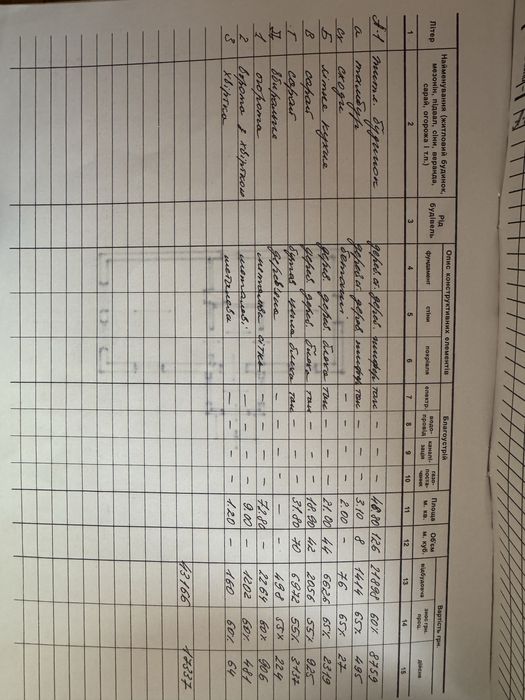 Літер
Найменування (житловий будинок, мезонін, підвал, сіни, веранда, сарай, огорожа і т.п.)
Рід будівель
Опис конструктивних елементів
фундамент
стіни
покрівля
Благоустрій
електр.
водо-провід
каналі-зація
газо-поста-чання
Площа м. кв.
Об'єм м. куб.
Вартість грн.
відбудовча
знос грн. проц.
дійсна
1 2 3 4 5 6 7 8 9 10 11 12 13 14 15
А-1 житл. будинок дерев. шифер так – – – 48.80 126 21898 60% 8759
а тамбур дерев. шифер так – – – 3.10 8 1414 65% 495
сх сходи бетонні – – – – 2.00 – 76 65% 27
Б літня кухня дерев. дерев. бляха так – – – 21.00 44 6626 65% 2319
В сарай дерев. дерев. бляха так – – – 18.90 42 2056 55% 925
Г сарай бутов. цегла бляха так – – – 31.80 70 6972 55% 3137
Д вбиральня дерев'яна – – – – – 498 55% 224
1 огорожа металева сітка – – – – 72.80 – 2264 60% 906
2 ворота з хвірткою металеві – – – – 9.00 – 1202 60% 481
3 хвіртка металева – – – – 1.20 – 160 60% 64
43166 17337